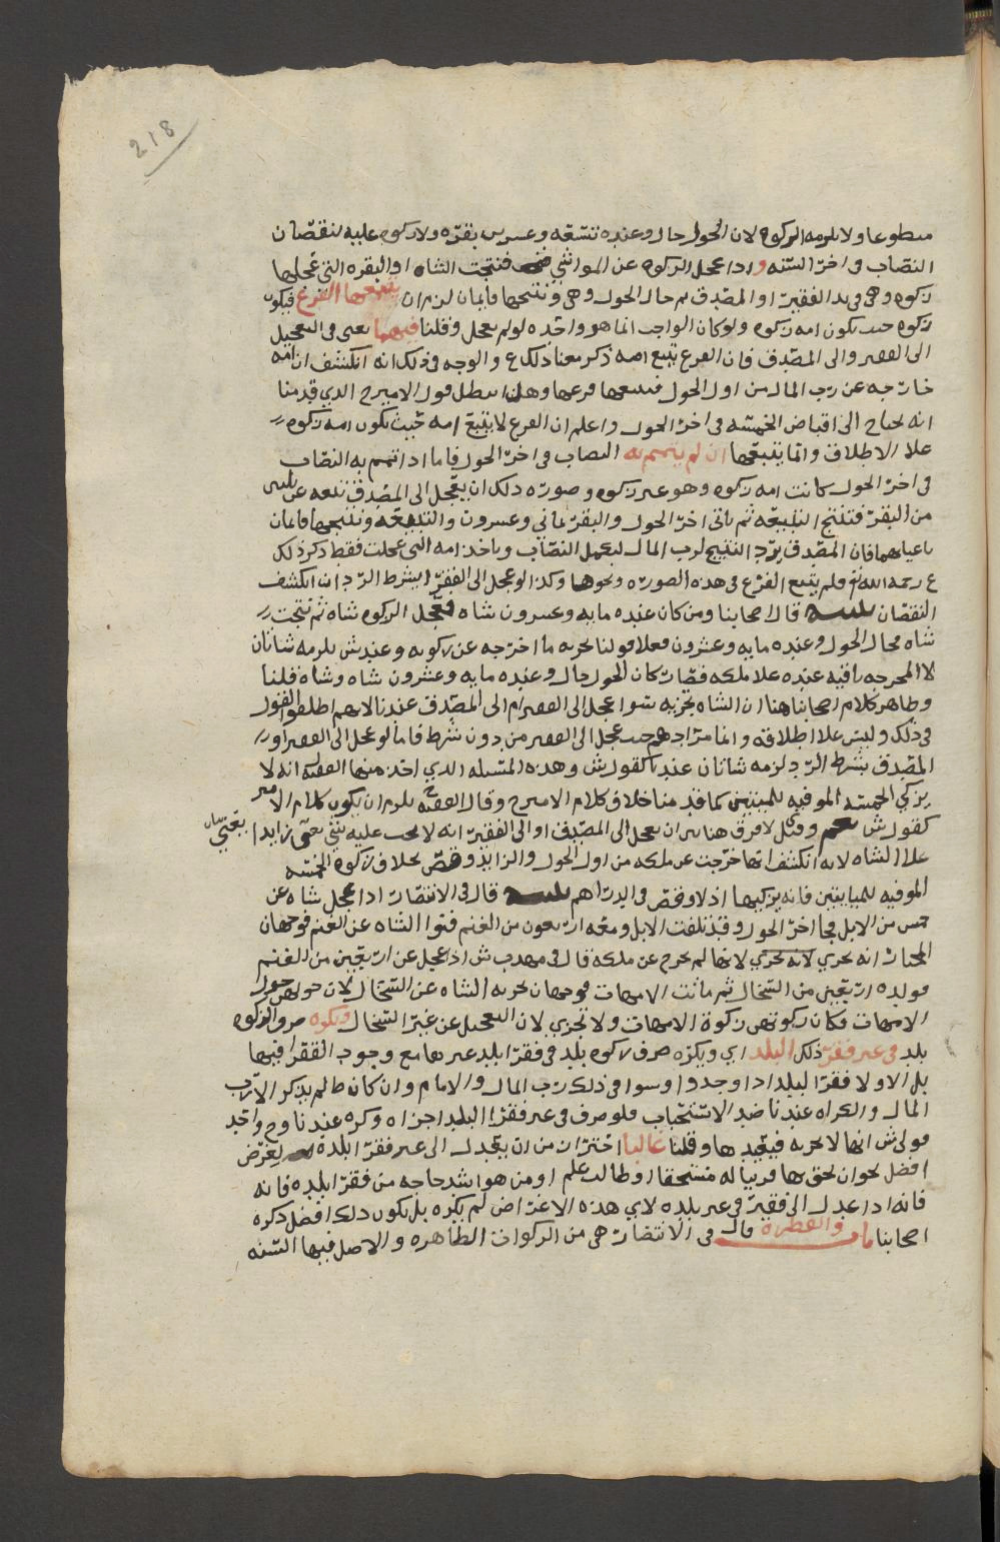 218
متطوعا ولا يلزمه الزكوه لان الحول حال وعنده تسعه وعسرين بقره ولا زكوه عليه لنقصان
النصاب في اخر السنه و اذا عجل الزكوه عن المواشي فنتجت الشاه او البقره التي عجلها
زكوه وهي في يد الفقير او المصدق ثم حال الحول وهي ونتيجها قايمان لزم ان يتبعها الفرع فيكون
زكوه حيث يكون امه زكوه ولو كان الواجب انما هو واحده لو لم يعجل وقلنا فيهما يعني في التعجيل
الى الفقير والى المصدق فان الفرع يتبع امه ذكر معنا ذلك ع والوجه في ذلك انه انكشف ان امه
خارجه عن رب المال من اول الحول فيتبعها فرعها وهذا يبطل قول الامير ح الذي قدمنا
انه يحتاج الى اقباض الخمسه في اخر الحول واعلم ان الفرع لا يتبع امه حيث يكون امه زكوه
علا الاطلاق وانما يتبعها ان لم يتمم به النصاب في اخر الحول فاما اذا تمم به النصاب
في اخر الحول كانت امه زكوه وهو غير زكوه وصوره ذلك ان يعجل الى المصدق تبيعه عن ثلثين
من البقر فتنتج التبيعه ثم ياتي اخر الحول والبقر ثماني وعسرون والتبيعه ونتيجها قايمان
باعيانهما فان المصدق يرد النتيج لرب المال ليكمل النصاب وياخذ امه التي عجلت فقط ذكر ذلك
ع رحمه الله فلم يتبع الفرع في هذه الصوره ونحوها وكذا لو عجل الى الفقير بشرط الرد ان انكشف
النقصان تنبيه قال اصحابنا ومن كان عنده مايه وعسرون شاه فعجل الزكوه شاه ثم نتجت
شاه فحال الحول وعنده مايه وعشرون فعلا قولنا يجزيه ما اخرجه عن زكوته وعند ش يلزمه شاتان
لان المخرجه باقيه عنده علا ملكه فصار كان الحول حال وعنده مايه وعشرون شاه وشاه قلنا
وظاهر كلام اصحابنا هنا ان الشاه تجزيه سوا عجل الى الفقير ام الى المصدق عندنا لانهم اطلقوا القول
في ذلك وليس علا اطلاقه وانما مرادهم حيث عجل الى الفقير من دون شرط فاما لو عجل الى الفقير او
المصدق بشرط الرد لزمه شاتان عندنا كقول ش وهذه المسئله الذي اخذ منها الفقيه انه لا
يزكي الخمسه الموفيه للميتين كما قدمنا خلاف كلام الامير ح وقال الفقيه ح يلزم ان يكون كلام الامير
كقول ش وقيل لا فرق هنا بين ان يعجل الى المصدق او الى الفقير انه لا يجب عليه شي يعني زايدا
علا الشاه لانه انكشف انها خرجت عن ملكه من اول الحول والزايد وقص بخلاف زكوه الخمسه
الموفيه للميايتين فانه يزكيها اذ لا وقص في الدراهم تنبيه قال في الانتصار اذا عجل شاه عن
خمس من الابل فجا اخر الحول وقد تلفت الابل ومعه اربعون من الغنم فنوا الشاه عن الغنم فوجهان
المختار انه يجزي لانه يجزي لانها لم تخرج عن ملكه قال في مهذب ش اذا عجل عن اربعين من الغنم
فولده اربعين من السخال ثم ماتت الامهات فوجهان يجزيه الشاه عن السخال لان حولهن حول
الامهات فكان زكوتهن زكوة الامهات ولا تجزي لان التعجيل عن غير السخال ويكره صرف الزكوه
بلد في غير فقر ذلك البلد اي ويكره صرف زكوه بلد في فقرا بلد غيرها مع وجود الفقرا فيها
بل الاولا فقرا البلد اذا وجدوا وسوا في ذلك رب المال والامام وان كان ط لم يذكر الا رب
المال والكراه عندنا ضد الاستحباب فلو صرف في غير فقرا البلد اجزاه وكره عندنا وح واحد
قولي ش انها لا تجزيه فيعيدها وقلنا غالبا احترازا من ان يعدل الى غير فقرا بلده لغرض
افضل نحو ان يخص بها قريبا له مستحقا او طالب علم او من هو اشد حاجه من فقرا بلده فانه
فانه اذا عدل الى فقير في غير بلده لاي هذه الاغراض لم يكره بل يكون ذلك افضل ذكره
اصحابنا باب والفطره قال في الانتصار هي من الزكوات الظاهره والاصل فيها السنه